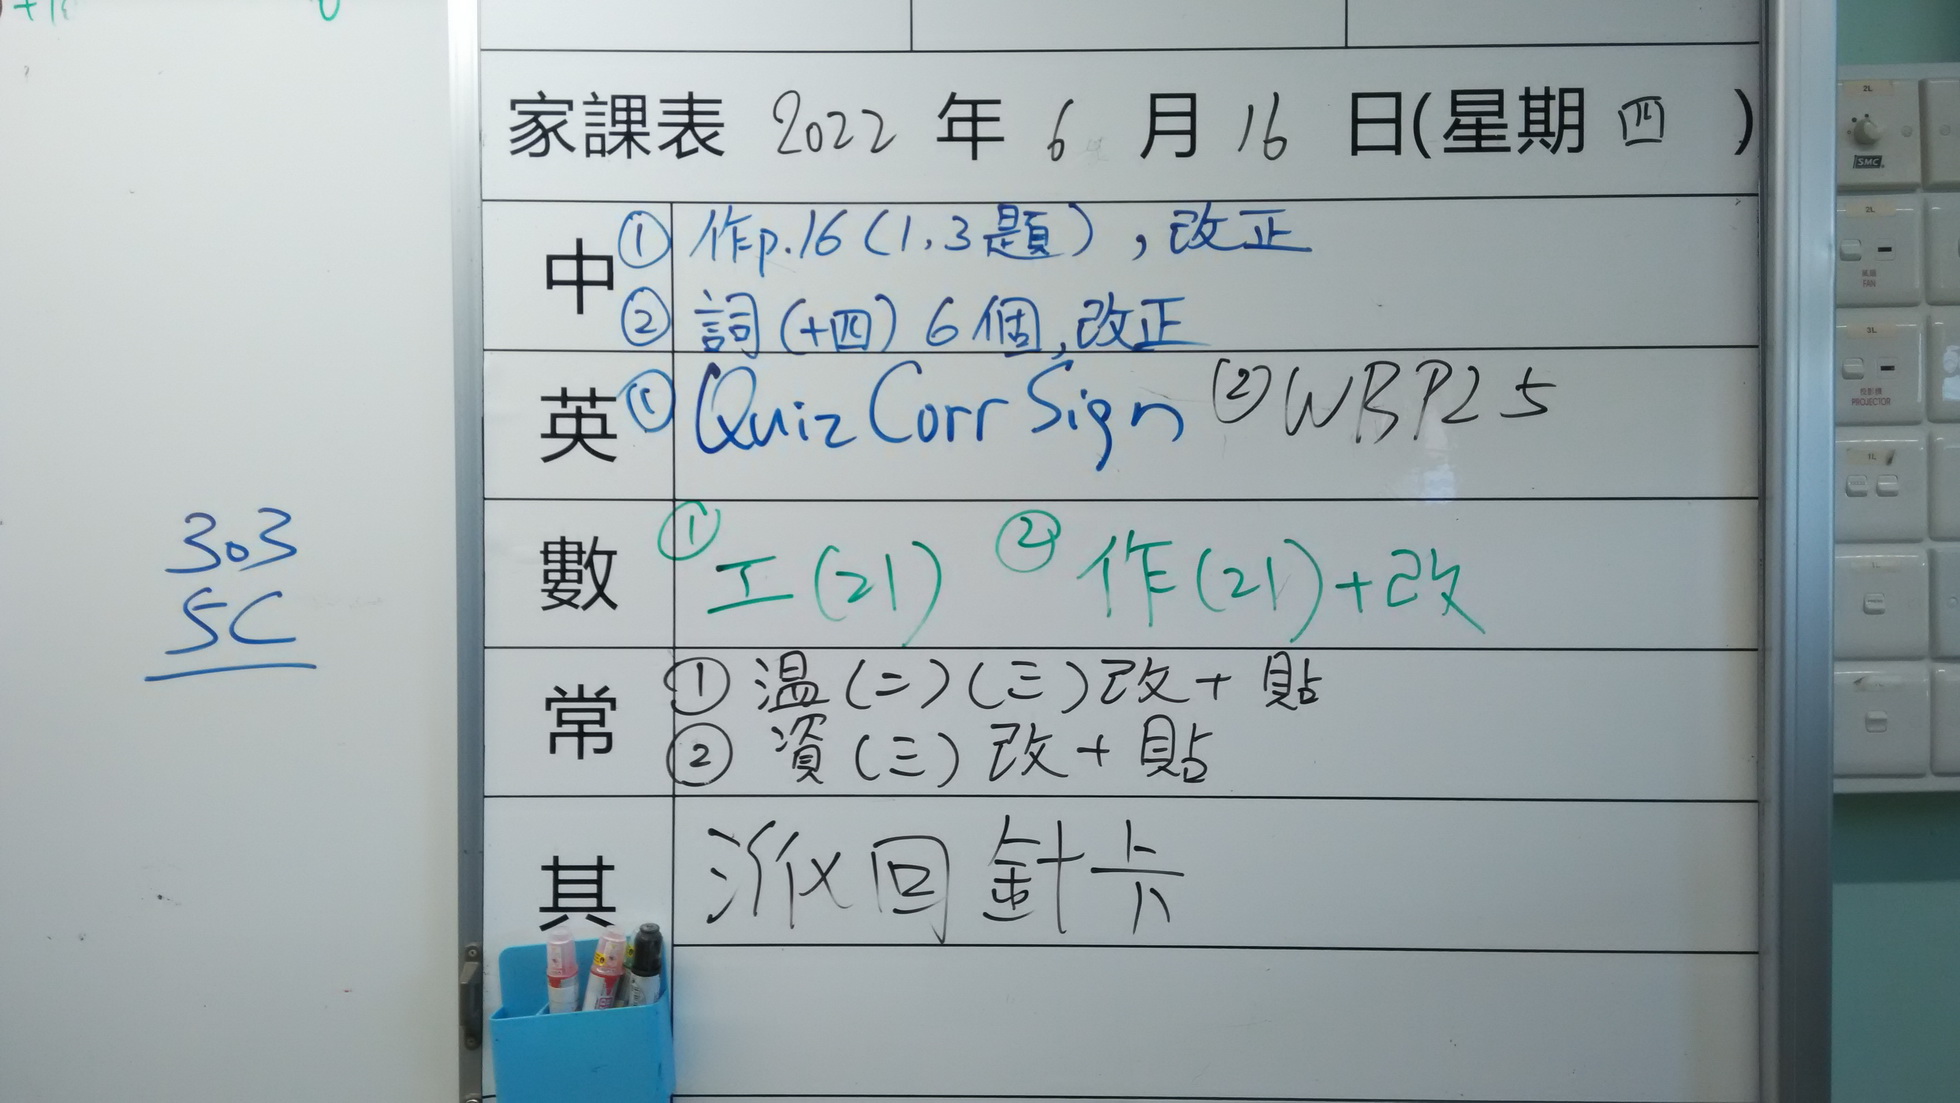 303
5C
家課表 2022 年 6 月 16 日(星期 四 )
中 ① 作p.16 (1,3題), 改正
② 詞 (十四) 6個, 改正
英 ① Quiz Corr Sign ② WB P25
數 ① 工(21) ② 作(21)+改
常 ① 温(二)(三)改+貼
② 資(三)改+貼
其 回 針卡
2L
SMC
2L
風扇
FAN
3L
投影機
PROJECTOR
1L